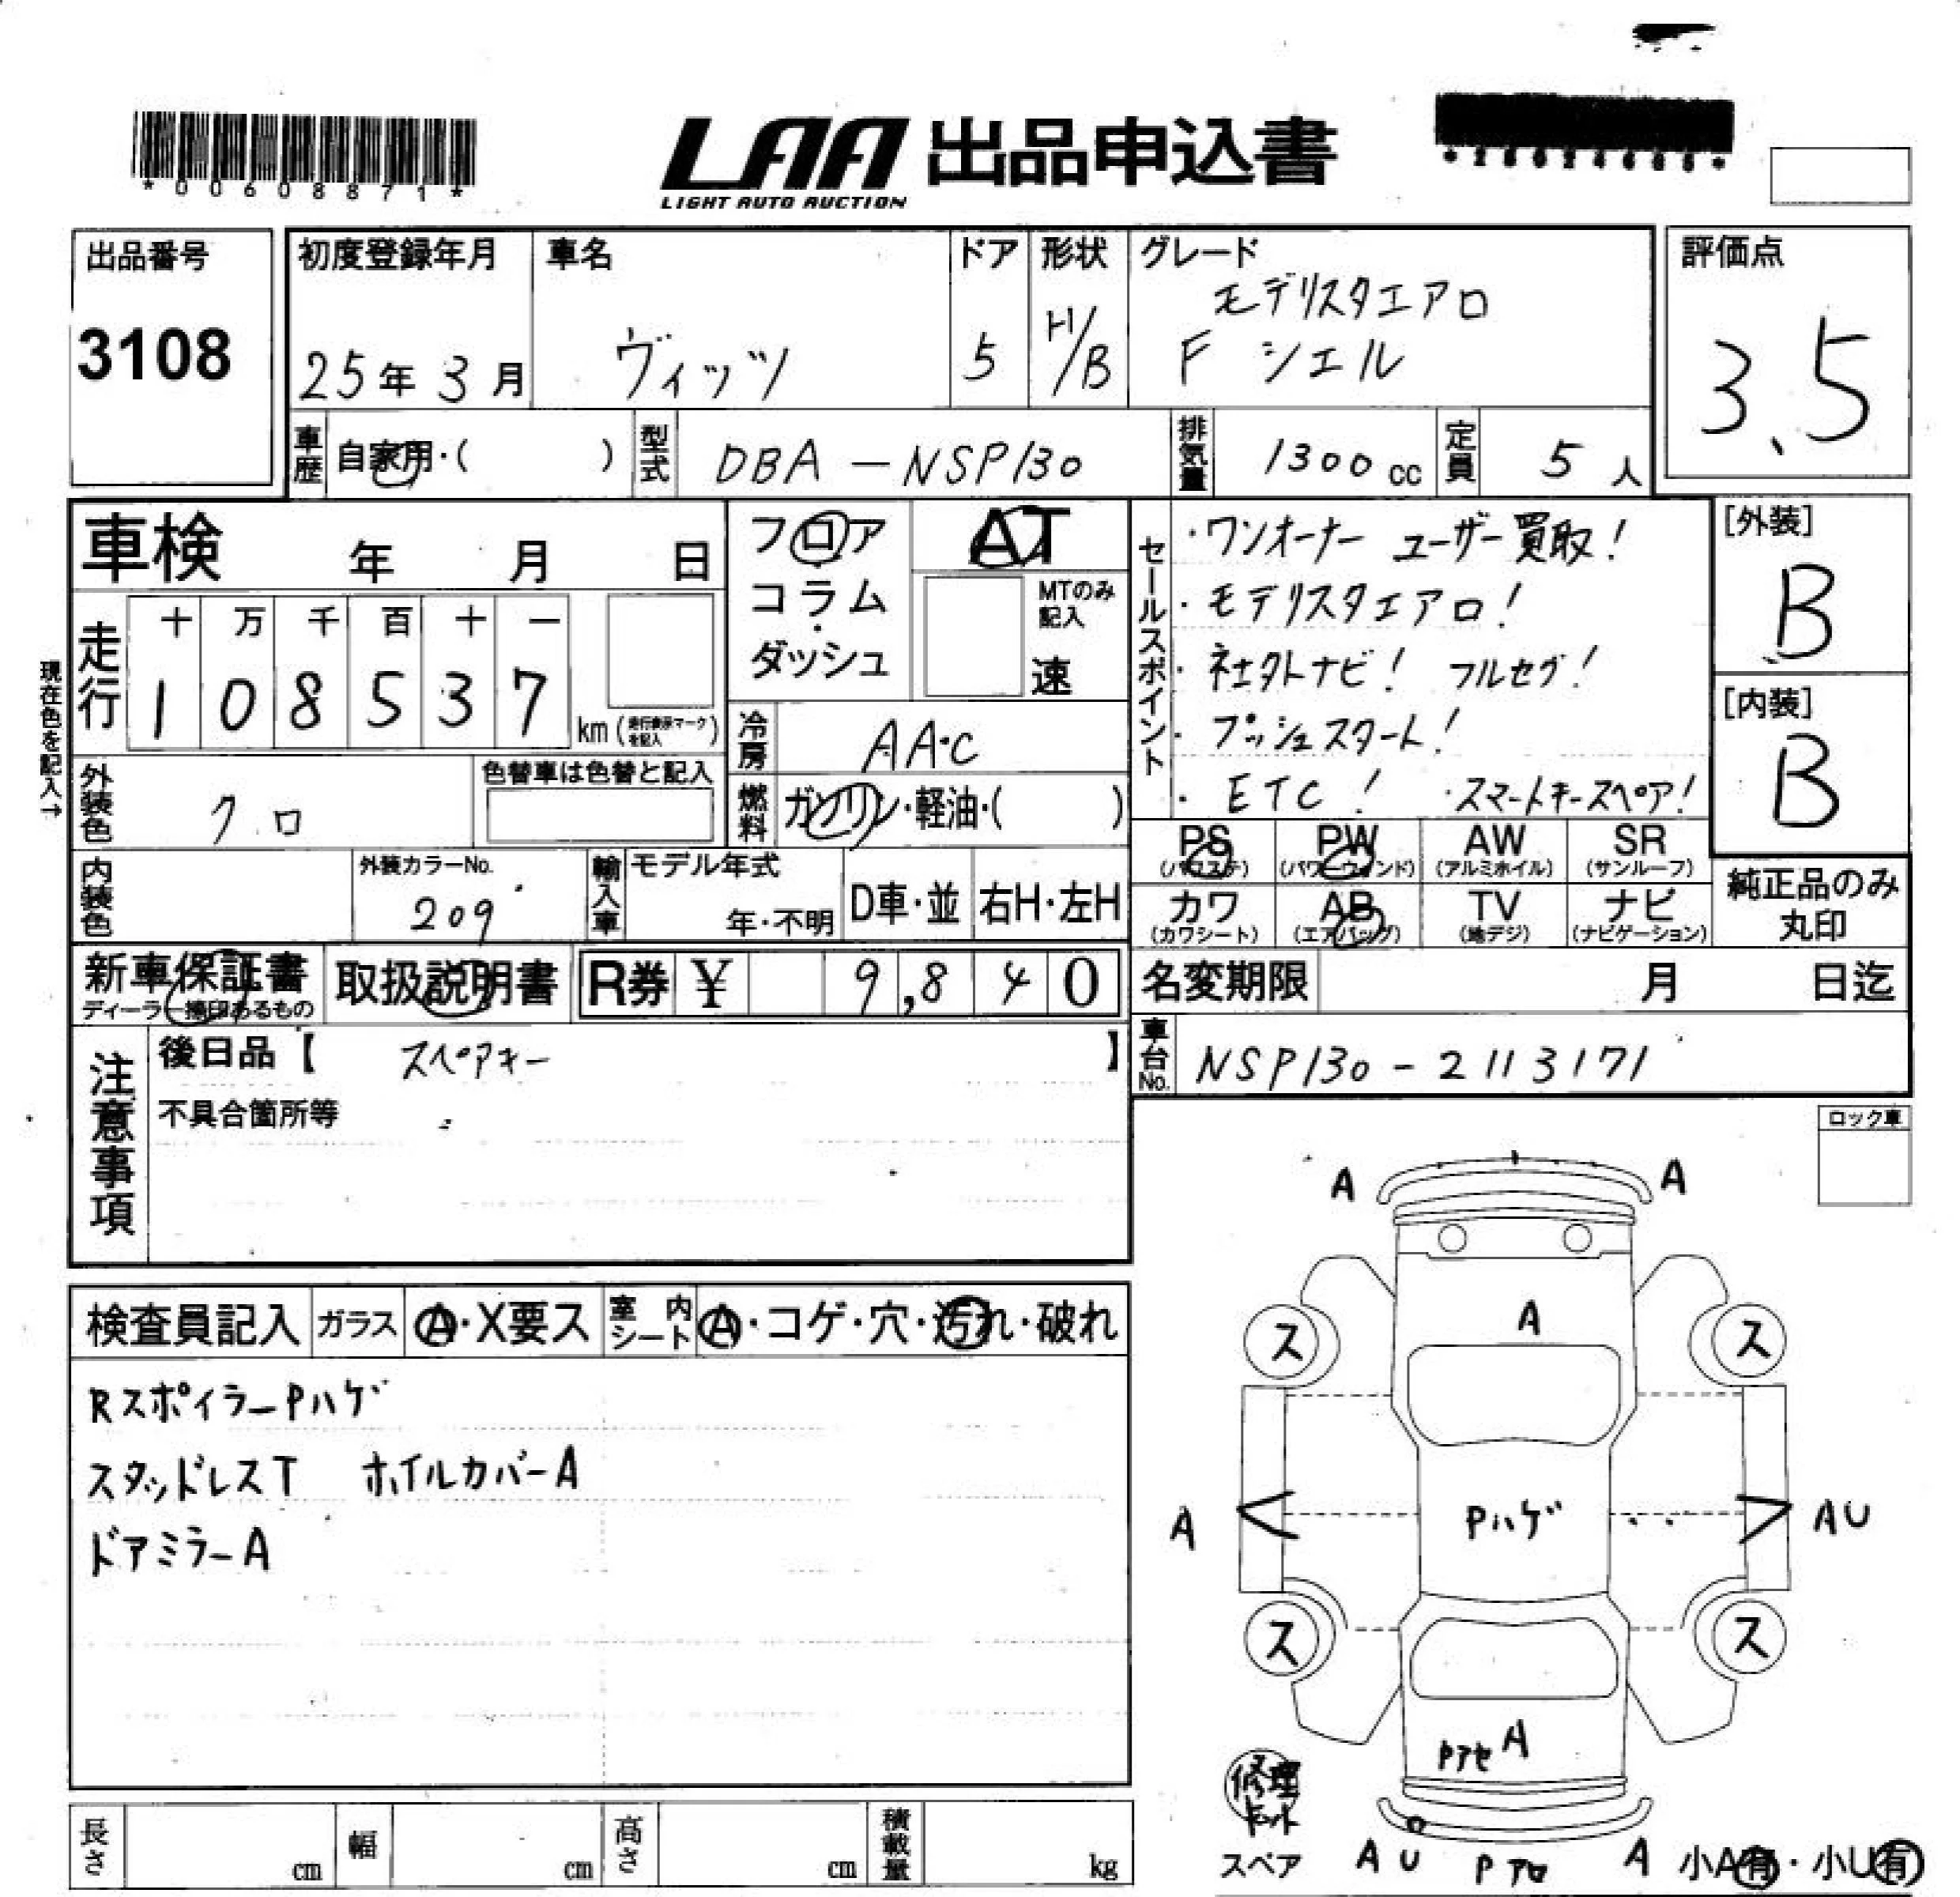 *00608871*
LAA 出品申込書
LIGHT AUTO AUCTION
出品番号
3108
初度登録年月
25年3月
車名
ヴィッツ
ドア
5
形状
H/B
グレード
モデリスタエアロ
F シエル
評価点
3.5
車歴
自家用・( )
型式
DBA-NSP130
排気量
1300cc
定員
5人
車検 年 月 日
フロア
コラム
ダッシュ
AT
MTのみ
記入
速
セールスポイント
・ワンオーナー ユーザー買取!
・モデリスタエアロ!
・社外ナビ! フルセグ!
・プッシュスタート!
・ETC! ・スマートキースペア!
[外装]
B
[内装]
B
現在色を記入→
走行
十 万 千 百 十 一
1 0 8 5 3 7
km (走行表示マークを記入)
冷房
AAC
外装色
クロ
色替車は色替と記入
燃料
ガソリン・軽油・( )
PS PW AW SR
(パワステ) (パワーウィンド) (アルミホイル) (サンルーフ)
内装色
外装カラーNo.
209
輸入車
モデル年式
年・不明
D車・並
右H・左H
カワ AB TV ナビ
(カワシート) (エアバッグ) (地デジ) (ナビゲーション)
純正品のみ
丸印
新車保証書
ディーラー捺印あるもの
取扱説明書
R券 ¥ 9,840
名変期限 月 日迄
注意事項
後日品【 スペアキー 】
不具合箇所等
車台No.
NSP130-2113171
ロック車
A A
検査員記入
ガラス
A・X要ス
室内シート
A・コゲ・穴・汚れ・破れ
Rスポイラー Pハゲ
スタッドレスT ホイルカバーA
ドアミラーA
A
ス ス
A Pハゲ AU
ス ス
Pアセ A
修理
キット
スペア
AU A 小A有・小U有
長さ cm
幅 cm
高さ cm
積載量 kg